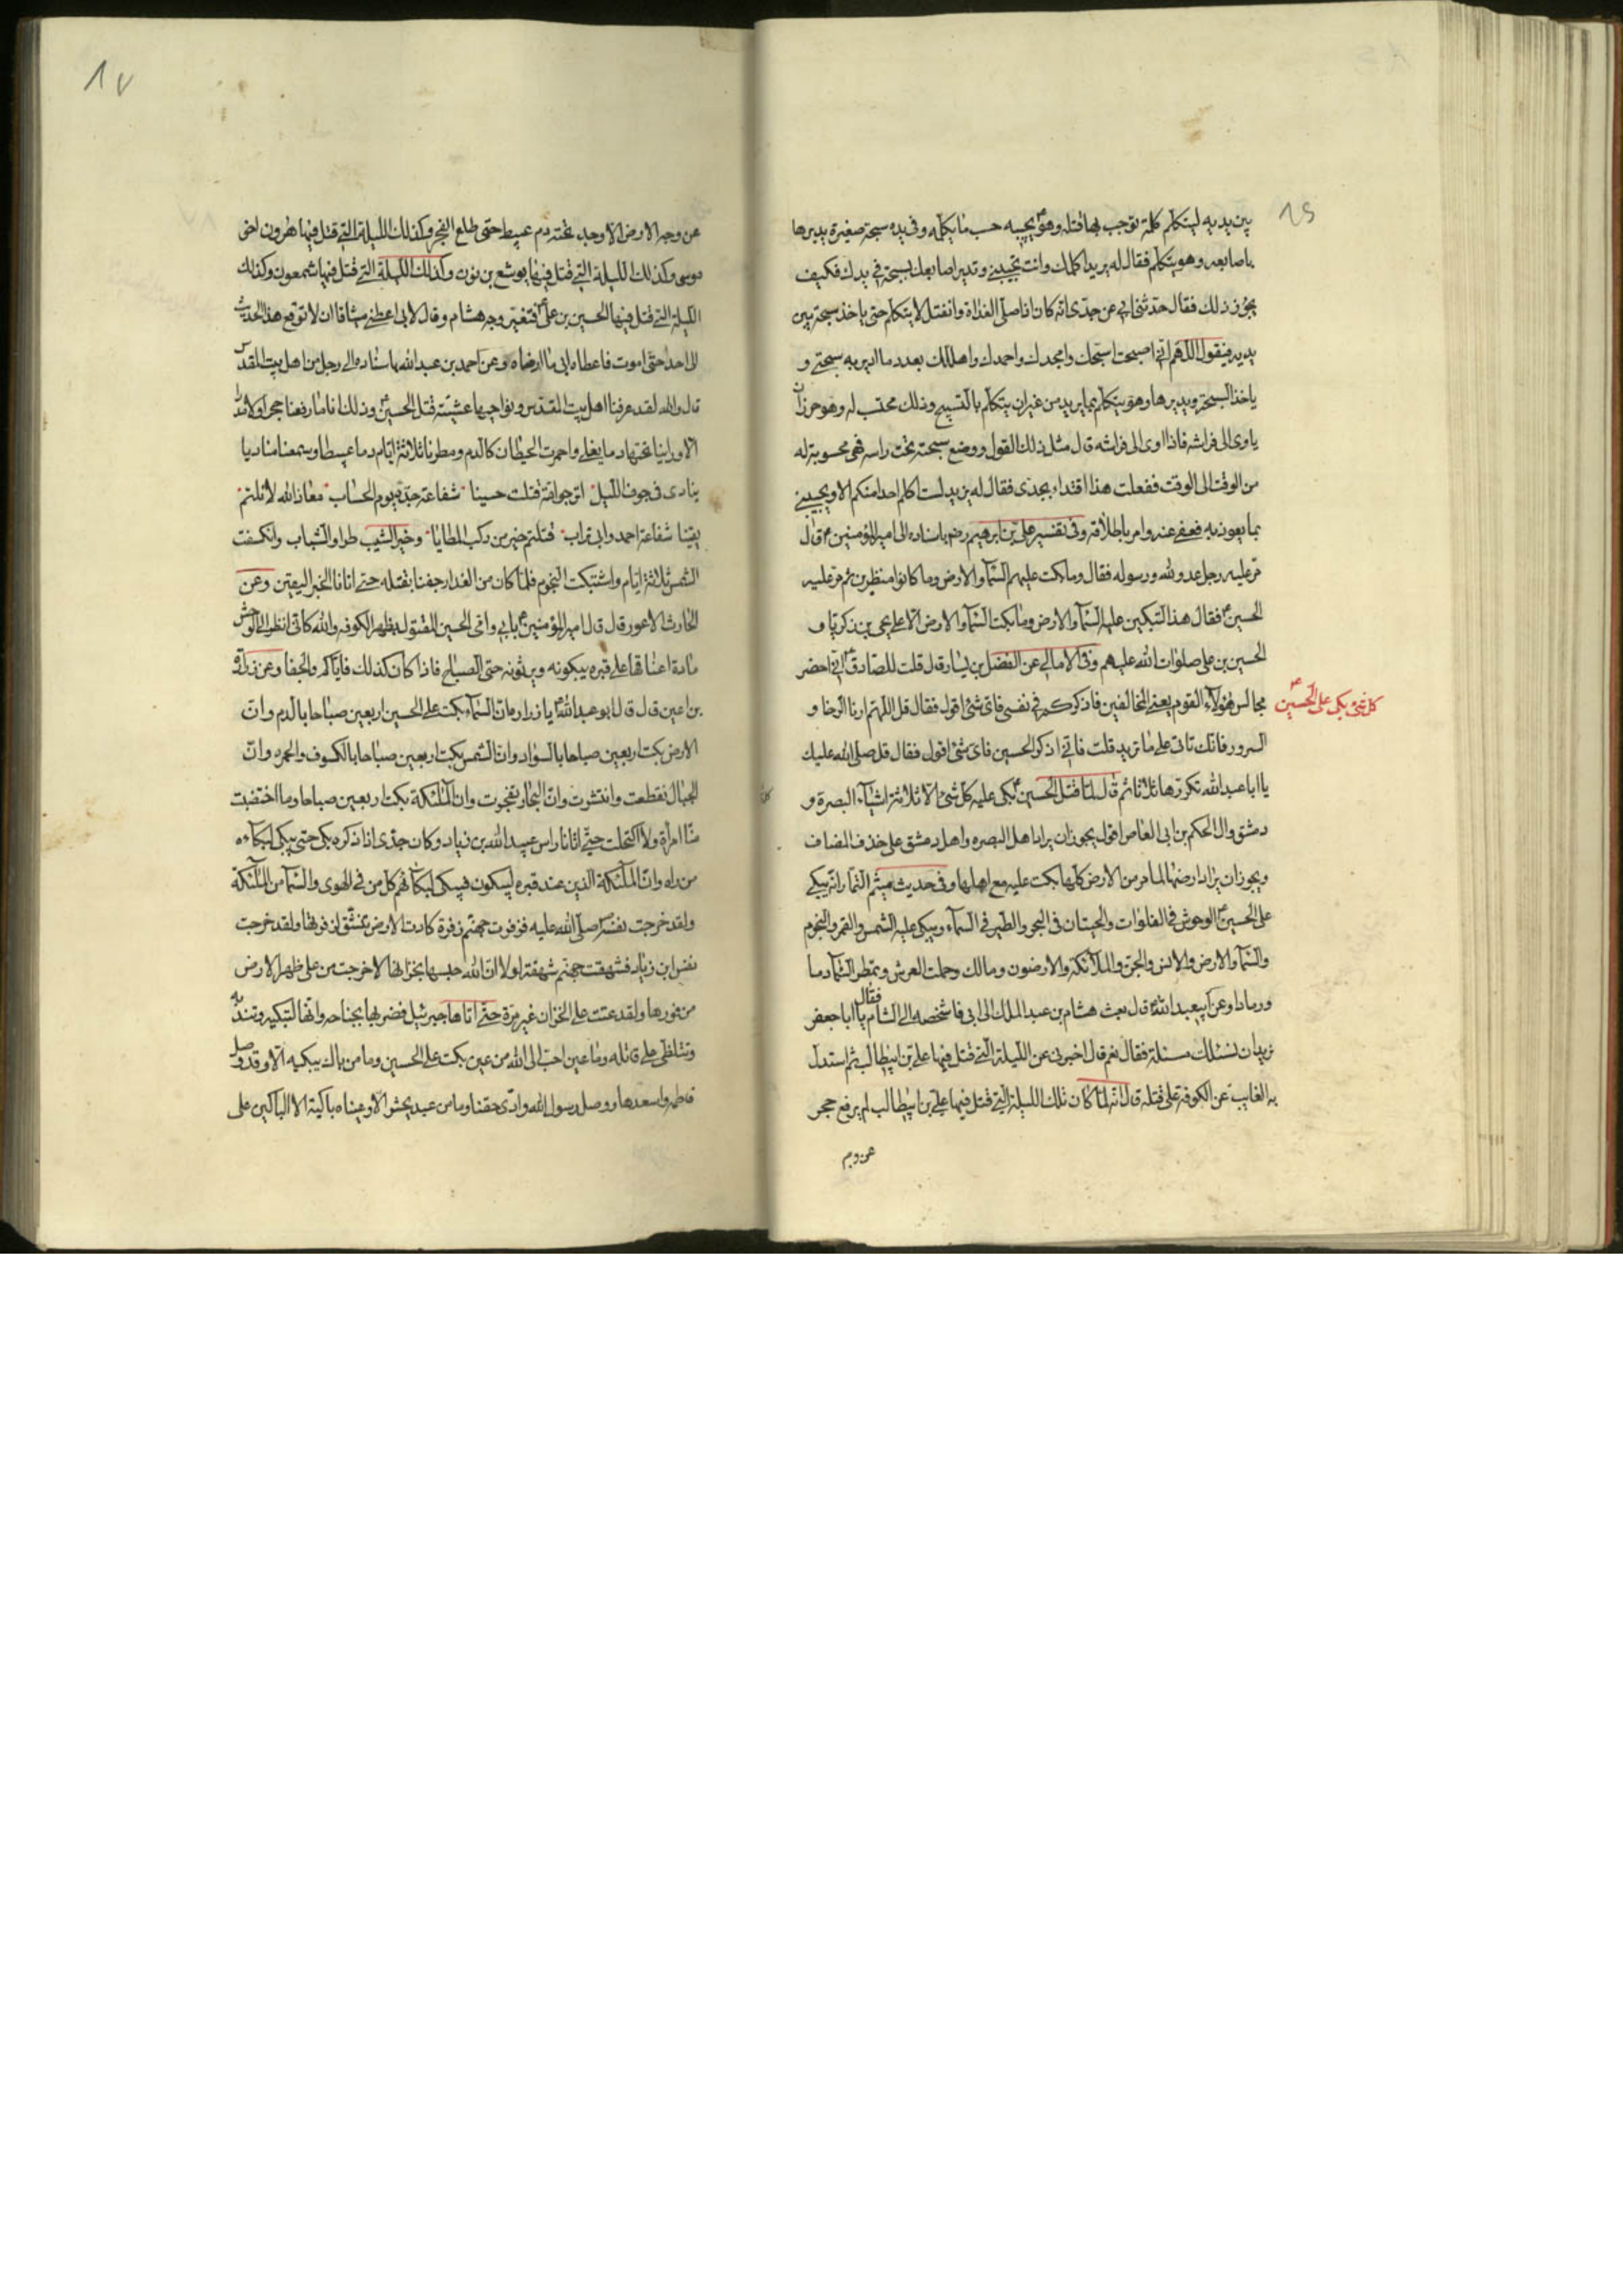 بين يديه ليتكلم كلمة توجب بها قتله وهو ع يجيبه حسب ما يكلمه وفى يده سبحة صغيرة يديرها
باصابعه وهو يتكلم فقال له يزيد اكلمك وانت تجيبنى وتدير اصابعك بسبحة فى يدك فكيف
يجوز ذلك فقال حدثنى ابى عن جدى انه كان اذا صلى الغداة وانفتل لا يتكلم حتى ياخذ سبحة بين
يديه فيقول اللهم انى اصبحت اسبحك وامجدك واحمدك واهللك بعدد ما ادير به سبحتى و
ياخذ السبحة ويديرها وهو يتكلم بما يريد من غير ان يتكلم بالتسبيح وذلك محتسب له وهو حرز ان
ياوى الى فراشه فاذا اوى الى فراشه قال مثل ذلك القول ووضع سبحته تحت راسه فهى محسوبة له
من الوقت الى الوقت ففعلت هذا اقتداء بجدى فقال له يزيد لست اكلم احدا منكم الا ويجيبنى
بما يعوذ به فعفى عنه وامر باطلاقه وفى تفسير على بن ابرهيم رضه باسناده الى امير المؤمنين ع قال
مر عليه رجل عدو لله ورسوله فقال وما بكت عليهم السماء والارض وما كانوا منظرين ثم مر عليه
الحسين ع فقال هذا لتبكين عليه السماء والارض وما بكت السماء والارض الا على يحيى بن زكريا و
الحسين بن على صلوات الله عليهم وفى الامالى عن الفضل بن يسار قال قلت للصادق ع انى احضر
مجالس هؤلاء القوم يعنى المخالفين فاذكركم فى نفسى فاى شئ اقول فقال قل اللهم ارنا الرخا و
كل شئ بكى على الحسين ع
السرور فانك تاتى على ما تريد قلت فانى اذكر الحسين فاى شئ اقول فقال قل صلى الله عليك
يا ابا عبد الله تكررها ثلاثا ثم قال لما قتل الحسين ع بكى عليه كل شئ الا ثلاثة اشياء البصرة و
دمشق وال الحكم بن ابى العاص اقول يجوز ان يراد اهل البصره واهل دمشق على حذف المضاف
ويجوز ان يراد ارضهما لما مر من الارض كلها بكت عليه مع اهلها وفى حديث ميثم التمار انه يبكى
على الحسين ع الوحوش فى الفلوات والحيتان فى البحر والطير فى السماء ويبكى عليه الشمس والقمر والنجوم
والسماء والارض والانس والجن والملائكه والارضون ومالك وحملت العرش وتمطر السماء دما
ورمادا وعن ابيعبد الله ع قال بعث هشام بن عبد الملك الى ابى فاشخصه الى الشام فقال يا ابا جعفر
نريد ان نسئلك مسئلة فقال نعم قال اخبرنى عن الليلة التى قتل فيها على بن ابيطالب ثم استدل
به الغايب عن الكوفة على قتله قال انه لما كان تلك الليلة التى قتل فيها على بن ابيطالب لم يرفع حجر
عن وجه
١٧
عن وجه الارض الا وجد تحته دم عبيط حتى طلع الفجر وكذلك الليلة التى قتل فيها هرون اخى
موسى وكذلك الليلة التى قتل فيها يوشع بن نون وكذلك الليلة التى قتل فيها شمعون وكذلك
الليلة التى قتل فيها الحسين بن على ع فتغير وجه هشام وقال لابى اعطنى ميثاقا ان لا توقع هذا الحديث
الى احد حتى اموت فاعطاه ابى ما ارضاه وعن احمد بن عبد الله باسناده الى رجل من اهل بيت المقدس
قال والله لقد عرفنا اهل بيت المقدس ونواحيها عشية قتل الحسين ع وذلك انا ما رفعنا حجرا ولا مدرا
الا وراينا تحتها دما يغلى واحمرت الحيطان كالدم ومطرنا ثلاثة ايام دما عبيطا وسمعنا مناديا
ينادى فى جوف الليل اترجو امة قتلت حسينا شفاعة جده يوم الحساب معاذ الله لا نلتم
يقينا شفاعة احمد وابى تراب قتلتم خير من ركب المطايا وخير الشيب طرا والشباب وانكسفت
الشمس ثلاثة ايام واشتبكت النجوم فلما كان من الغد ارجفنا بقتله حتى اتانا الخبر اليقين وعن
الحارث الاعور قال قال امير المؤمنين ع بابى وامى الحسين المقتول بظهر الكوفه والله كانى انظر الى الوحش
مادة اعناقها على قبره يبكونه ويرثونه حتى الصباح فاذا كان كذلك فاياكم والجفا وعن زرارة
بن اعين قال قال ابو عبد الله ع يا زرارة ان السماء بكت على الحسين اربعين صباحا بالدم وان
الارض بكت اربعين صباحا بالسواد وان الشمس بكت اربعين صباحا بالكسوف والحمره وان
الجبال تقطعت وانتثرت وان البحار تفجرت وان الملئكة بكت اربعين صباحا وما اختضبت
منا امراة ولا اكتحلت حتى اتانا راس عبيد الله بن زياد وكان جدى اذا ذكره بكى حتى يبكى لبكاءه
من راه وان الملئكة الذين عند قبره ليبكون فيبكى لبكائهم كل من فى الهوى والسماء من الملئكة
ولقد خرجت نفسه صلى الله عليه فزفرت جهنم زفرة كادت الارض تنشق لزفرتها ولقد خرجت
نفس ابن زياد فشهقت جهنم شهقة لولا ان الله حبسها بخزانها لاحرقت من على ظهر الارض
من فورها ولقد عتت على الخزان غير مرة حتى اتاها جبرئيل فضربها بجناحه وانها لتبكيه وتندبه
وتتلظى على قاتله وما عين احب الى الله من عين بكت على الحسين وما من باك يبكيه الا وقد وصل
فاطمه واسعدها ووصل رسول الله وادى حقنا وما من عبد يحشر الا وعيناه باكية الا الباكين على